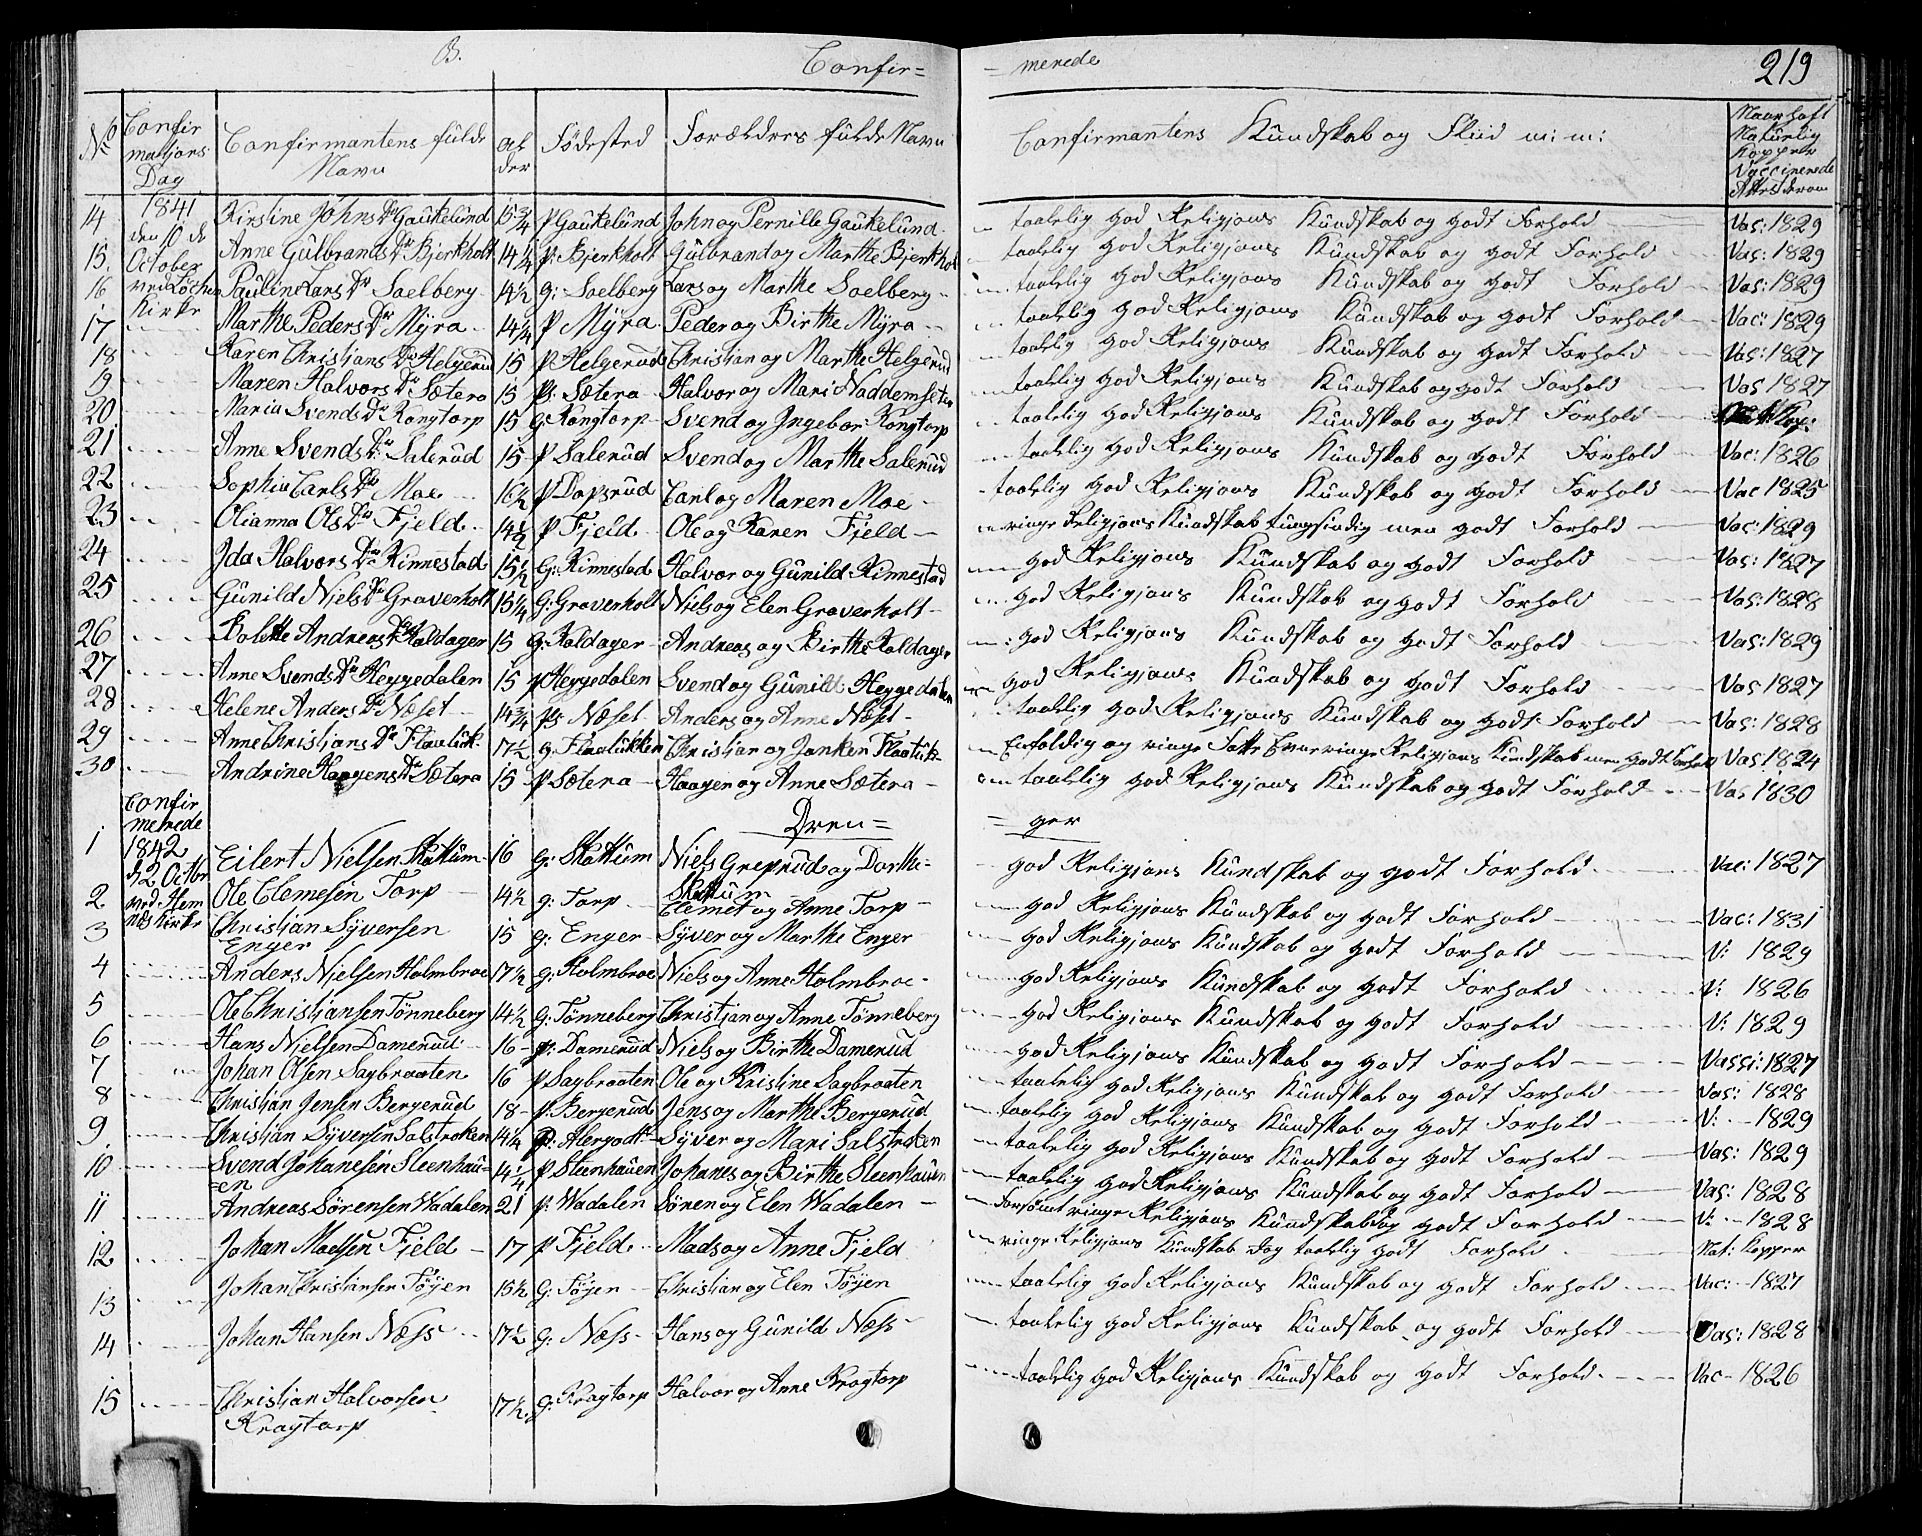 B.
Confir= = merede 219
No Confirmatjons Dag Confirmantens fulde Navn Alder Fødested Forældres fulde Navn Confirmantens Kundskab og Fliid m: m: Naar haft Naturlig Kopper Vaccinerede
14 1841 Kirstine Johns Dr Gaukelund 15 3/4 P Gaukelund John og Pernille Gaukelund taalelig god Religjons Kundskab og godt Forhold Vas: 1829
15. den 10 de October Anne Gulbrands Dr Bjerkholt 14 1/4 P: Bjerkholt Gulbrand og Marthe Bjerkholt taalelig god Religjons Kundskab og godt Forhold Vas: 1829
16 Pauline Lars Dr Solberg 14 1/2 g: Soelberg Lars og Marthe Soelberg taalelig god Religjons Kundskab og godt Forhold Vas: 1829
17 Kirke Marthe Peders Dr Myra 14 1/4 P Myra Peder og Birthe Myra taalelig god Religjons Kundskab og godt Forhold Vac: 1829
18 Karen Christjans Dr Helgerud 15 P Helgerud Christjan og Marthe Helgerud taalelig god Religjons Kundskab og godt Forhold Vas: 1827
19 Maren Halvors Dr Sætera 15 Ps. Sætera Halvor og Mari taalelig god Religjons Kundskab og godt Forhold Vas 1827
20 Maria Svends Dr Kongtorp 15 g Kongtorp Svend og Ingebor Kongtorp taalelig god Religjons Kundskab og godt Forhold
21 Anne Svends Dr Salerud 15 P Salerud Svend og Marthe Salerud taalelig god Religjons Kundskab og godt Forhold Vac: 1826
22 Sophie Carls Dr Moe 16 1/2 P Dopsrud Carl og Maren Moe taalelig god Religjons Kundskab og godt Forhold Vac 1825
23 Olianna Ols Dr Fjeld 14 1/2 P Fjeld Ole og Karen Fjeld ringe Religjons Kundskab tungsindig men godt Forhold Vac: 1829
24 Ida Halvors Dr Kinnestad 15 1/2 G: Kinnestad Halvor og Gunild Kinnestad god Religjons Kundskab og godt Forhold Vas: 1827
25 Gunild Niels Dr Graverholt 15 1/4 G: Graverholt Niels og Elen Graverholt god Religjons Kundskab og godt Forhold Vas: 1828
26 Bolette Andreas Dr Koldager 15 g: Koldager Andreas og Birthe Koldager god Religjons Kundskab og godt Forhold Vas: 1829
27 Anne Svends Dr Heggedalen 15 P Heggedalen Svend og Gunild Heggedalen god Religjons Kundskab og godt Forhold Vas 1827
28 Helene Anders Dr Næset 14 3/4 Ps Næset Anders og Anne Næset taalelig god Religjons Kundskab og godt Forhold Vas: 1828
29 Anne Christjans Dr Flaaluk: 17 1/2 g: Flaalukken Christjan og Flaaluk: Enfoldig og ringe Religjons Kundskab men godt Forhold Vas 1824
30 Andrine Haagens Dr Sætera 15 P Sætera Haagen og Anne Sætera taalelig god Religjons Kundskab og godt Forhold Vas 1830
Confirmerede Dren= = ger
1 1842 Eilert Nielsen Skattum 16 g: Skattum Niels og Dorthe Skattum god Religjons Kundskab og godt Forhold Vac: 1827
2 Ole Clemesen Torp 14 1/2 g: Torp Clemet og Anne Torp god Religjons Kundskab og godt Forhold Vac: 1831
3 Kirke Christjan Syversen Enger 15 g: Enger Syver og Marthe Enger god Religjons Kundskab og godt Forhold V: 1829
4 Anders Nielsen Holmbroe 17 1/2 g: Holmbroe Niels og Anne Holmbroe god Religjons Kundskab og godt Forhold V: 1826
5 Ole Christjansen Tønneberg 14 1/2 G: Tønneberg Christjan og Anne Tønneberg god Religjons Kundskab og godt Forhold V: 1829
6 Hans Nielsen Damerud 16 p: Damerud Niels og Birthe Damerud god Religjons Kundskab og godt Forhold Vassi: 1827
7 Johan Olsen Sagbraaten 16 P Sagbraaten Ole og Kristine Sagbraaten taalelig god Religjons Kundskab og godt Forhold Vas: 1828
8 Christjan Jensen Bergerud 18 P. Bergerud Jens og Marthe Bergerud taalelig god Religjons Kundskab og godt Forhold V: 1829
9. Christjan Syversen Salstroken 14 1/4 Syver og Mari Salstroken taalelig god Religjons Kundskab og godt Forhold Vas: 1829
10 Svend Johanesen Steenhau=en 14 1/4 P Steenhauen Johanes og Birthe Steenhauen taalelig god Religjons Kundskab og godt Forhold Vas: 1828
11 Andreas Sørensen Wadalen 21 P: Wadalen Søren og Elen Wadalen Forsømt ringe Religjons Kundskab og godt Forhold V: 1828
12 Johan Madsen Fjeld 17 P Fjeld Mads og Anne Fjeld ringe Religjons Kundskab dog taalelig godt Forhold Nat: Kopper
13 Johan Christiansen Tøjen 15 1/2 G: Tøjen Christian og Elen Tøjen taalelig god Religjons Kundskab og godt Forhold Vac: 1827
14 Johan Hansen Næss 17 1/2 G: Næss Hans og Gunild Næss taalelig god Religjons Kundskab og godt Forhold Vas: 1828
15 Christjan Halvorsen Kragtorp 17 1/2 g: Kragtorp Halvor og Anne Kragtorp taalelig god Religjons Kundskab og godt Forhold Vac 1826